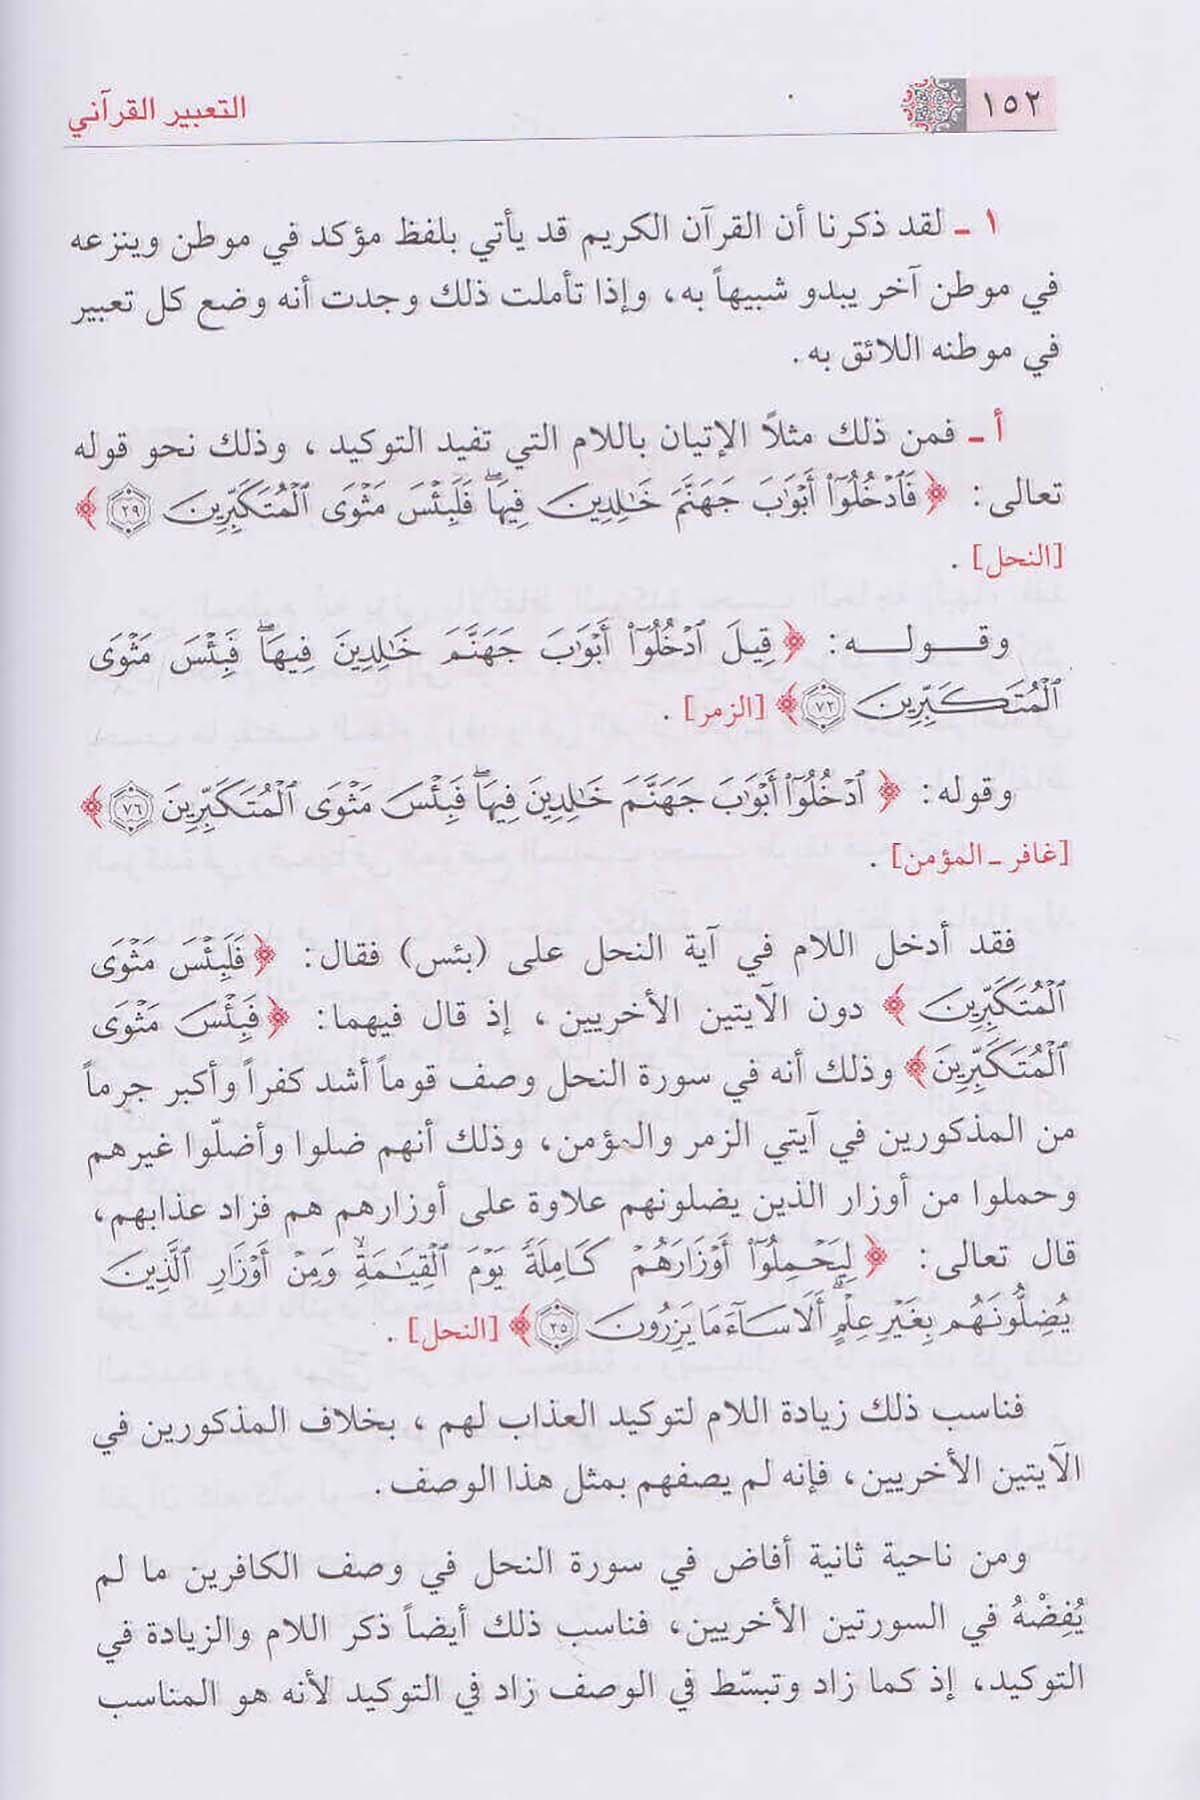 ١٥٢
التعبير القرآني
١ ـ لقد ذكرنا أن القرآن الكريم قد يأتي بلفظ مؤكد في موطن وينزعه
في موطن آخر يبدو شبيهاً به، وإذا تأملت ذلك وجدت أنه وضع كل تعبير
في موطنه اللائق به.
أ ـ فمن ذلك مثلاً الإتيان باللام التي تفيد التوكيد، وذلك نحو قوله
تعالى: ﴿فَٱدۡخُلُوٓاْ أَبۡوَٰبَ جَهَنَّمَ خَٰلِدِينَ فِيهَاۖ فَلَبِئۡسَ مَثۡوَى ٱلۡمُتَكَبِّرِينَ ٢٩﴾
[النحل].
وقوله: ﴿قِيلَ ٱدۡخُلُوٓاْ أَبۡوَٰبَ جَهَنَّمَ خَٰلِدِينَ فِيهَاۖ فَبِئۡسَ مَثۡوَى
ٱلۡمُتَكَبِّرِينَ ٧٢﴾ [الزمر].
وقوله: ﴿ٱدۡخُلُوٓاْ أَبۡوَٰبَ جَهَنَّمَ خَٰلِدِينَ فِيهَاۖ فَبِئۡسَ مَثۡوَى ٱلۡمُتَكَبِّرِينَ ٧٦﴾
[غافر ـ المؤمن].
فقد أدخل اللام في آية النحل على (بئس) فقال: ﴿فَلَبِئۡسَ مَثۡوَى
ٱلۡمُتَكَبِّرِينَ﴾ دون الآيتين الأخريين، إذ قال فيهما: ﴿فَبِئۡسَ مَثۡوَى
ٱلۡمُتَكَبِّرِينَ﴾ وذلك أنه في سورة النحل وصف قوماً أشد كفراً وأكبر جرماً
من المذكورين في آيتي الزمر والمؤمن، وذلك أنهم ضلوا وأضلّوا غيرهم
وحملوا من أوزار الذين يضلونهم علاوة على أوزارهم هم فزاد عذابهم،
قال تعالى: ﴿لِيَحۡمِلُوٓاْ أَوۡزَارَهُمۡ كَامِلَةٗ يَوۡمَ ٱلۡقِيَٰمَةِۙ وَمِنۡ أَوۡزَارِ ٱلَّذِينَ
يُضِلُّونَهُم بِغَيۡرِ عِلۡمٍۗ أَلَا سَآءَ مَا يَزِرُونَ ٢٥﴾ [النحل].
فناسب ذلك زيادة اللام لتوكيد العذاب لهم، بخلاف المذكورين في
الآيتين الأخريين، فإنه لم يصفهم بمثل هذا الوصف.
ومن ناحية ثانية أفاض في سورة النحل في وصف الكافرين ما لم
يُفِضْهُ في السورتين الأخريين، فناسب ذلك أيضاً ذكر اللام والزيادة في
التوكيد، إذ كما زاد وتبسّط في الوصف زاد في التوكيد لأنه هو المناسب